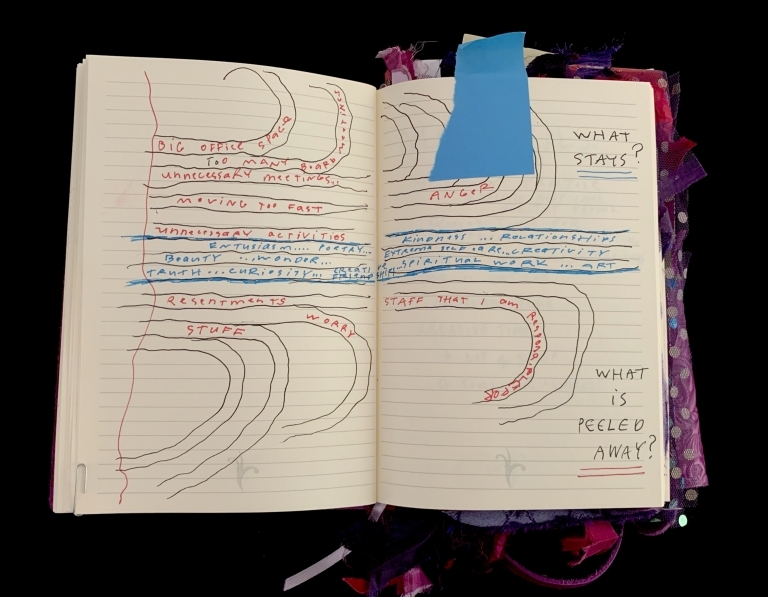 BIG OFFICE SPACE
MEETINGS
TOO MANY BOARD
UNNECESSARY MEETINGS...
MOVING TOO FAST
UNNECESSARY ACTIVITIES
ENTUSIASM.... POETRY...
BEAUTY ...WONDER...
TRUTH...CURIOSITY...
FRIENDSHIP
RESENTMENTS
WORRY
STUFF
ANGER
KINDNESS ... RELATIONSHIPS
EXTREME SELF CARE...CREATIVITY
...SPIRITUAL WORK ... ART
STAFF THAT I AM RESPONSIBLE FOR
WHAT
STAYS?
WHAT
IS
PEELED
AWAY?